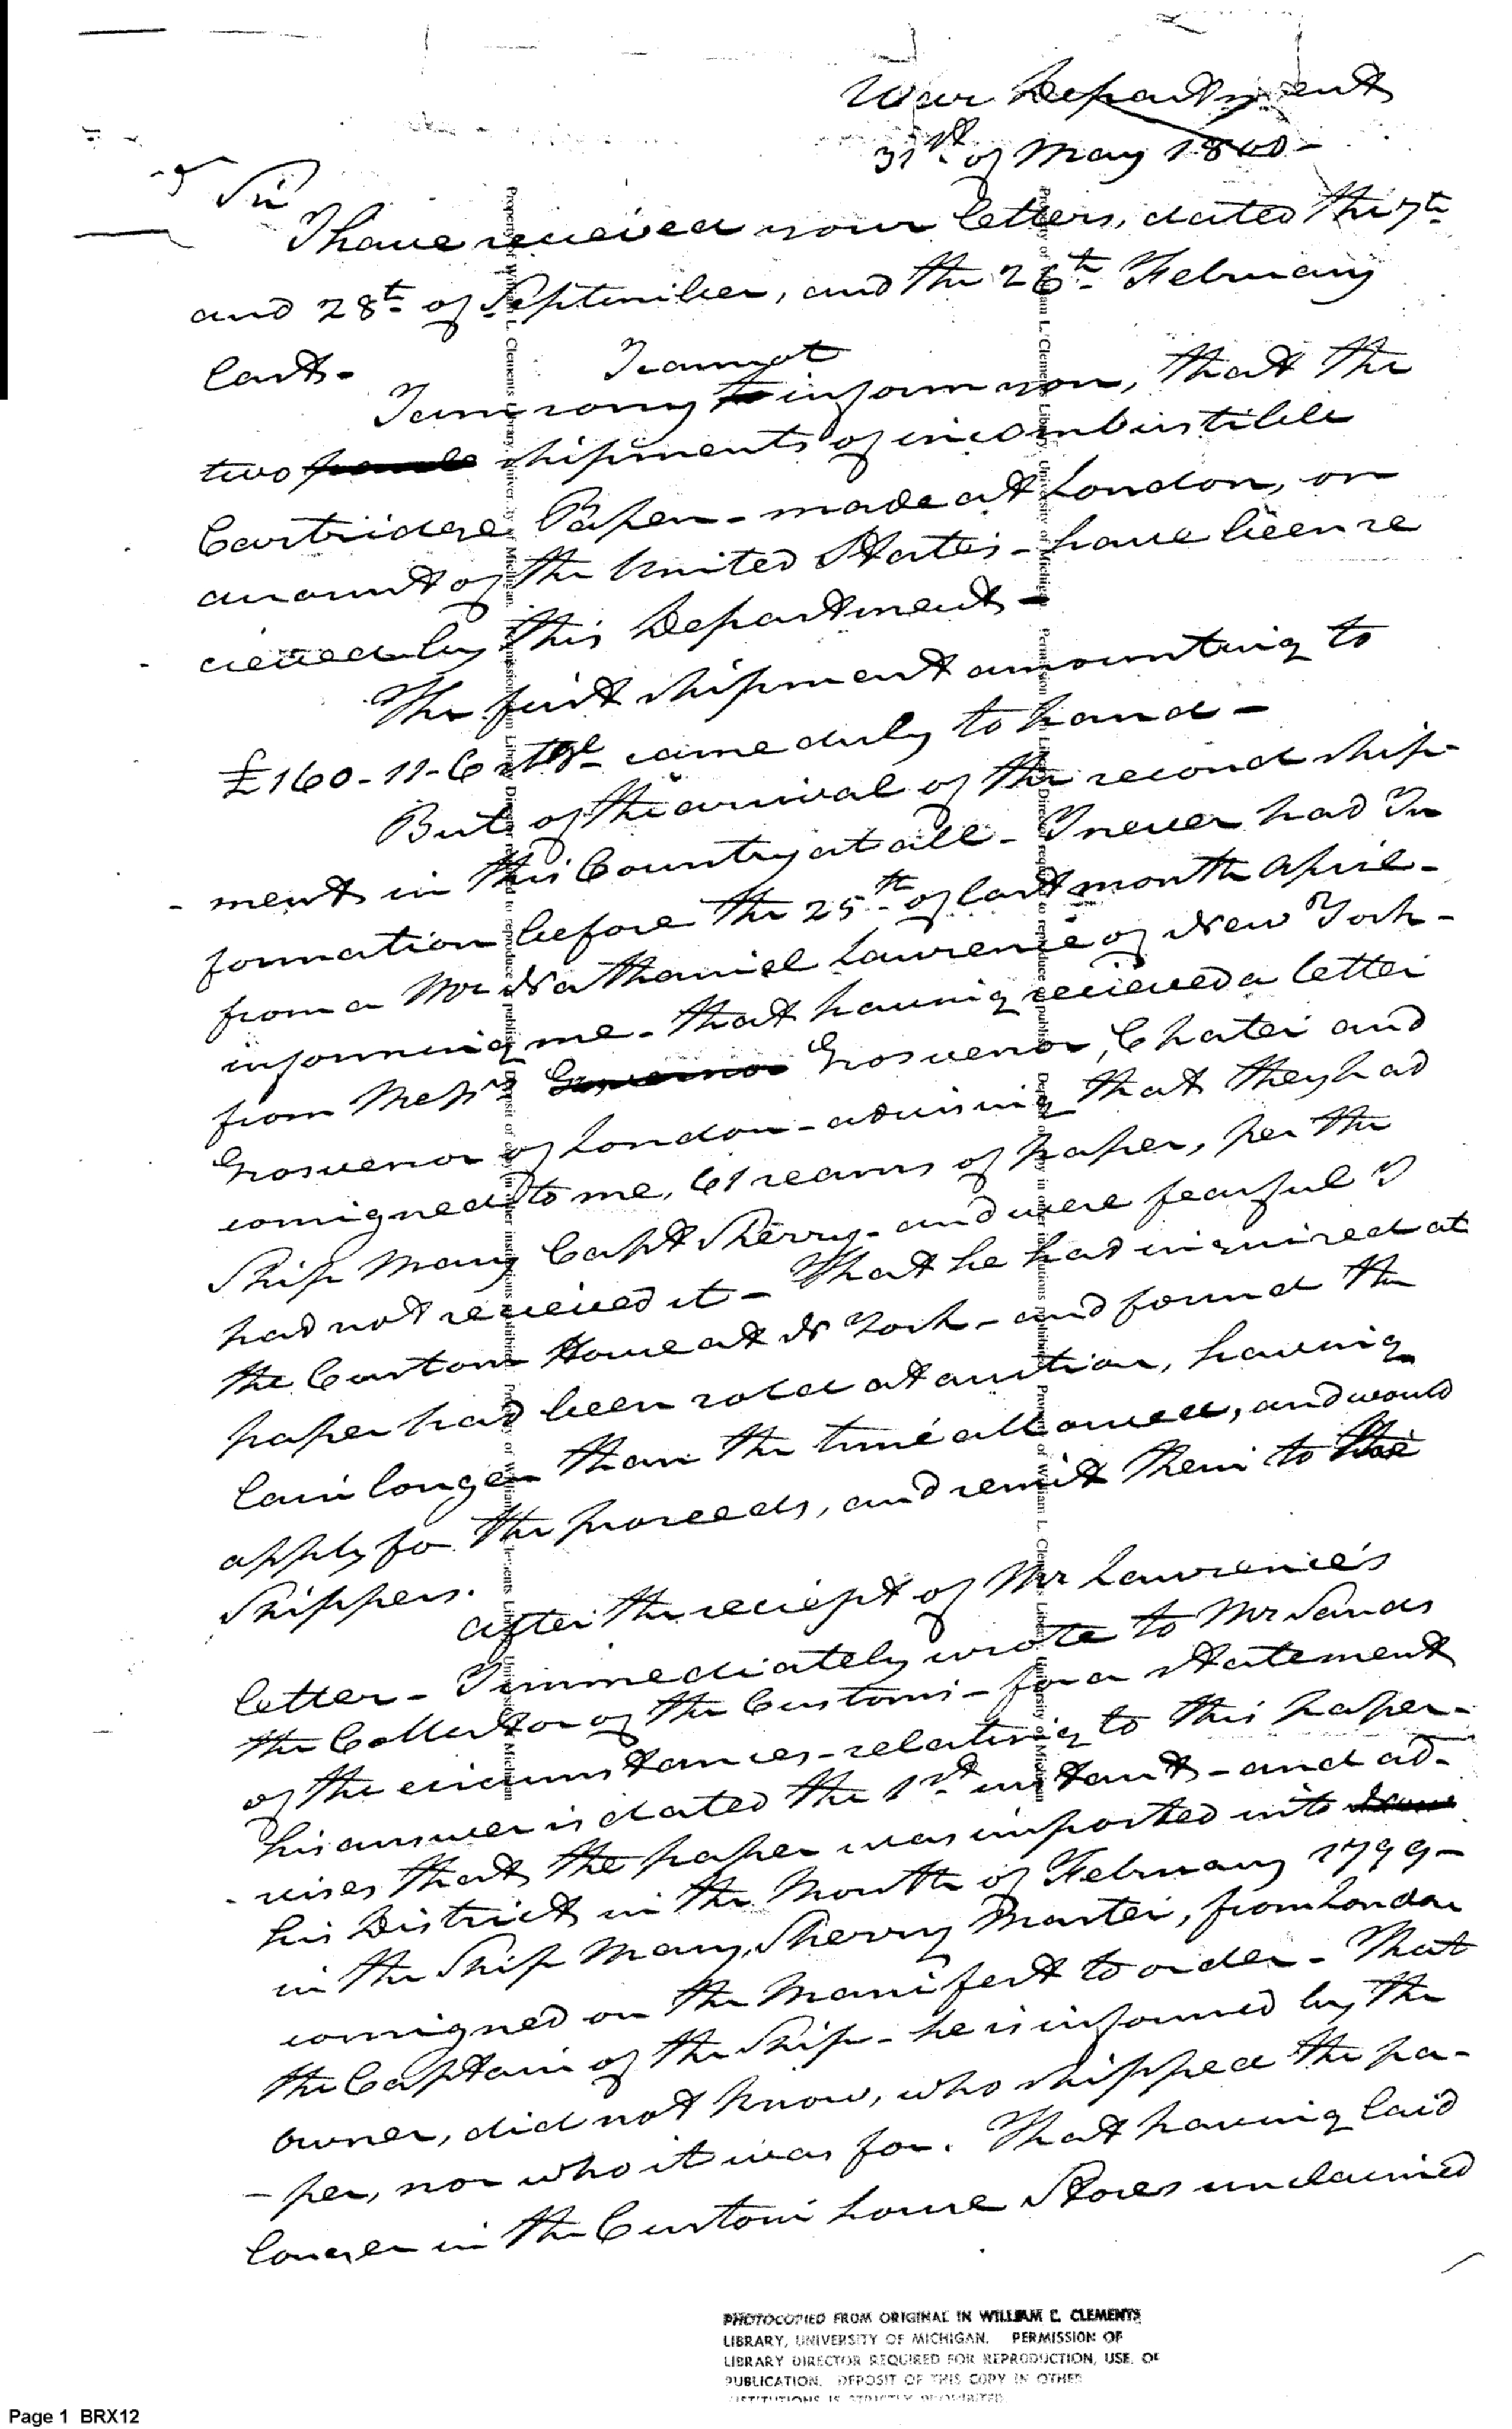 War Department
31st of May 1800-
Sir
I have received your letters, dated the 7th
and 28th of September, and the 26th February
last-
I cannot
I am sorry to inform you, that the
two shipments of incombustible
Cartridge Paper - made at London, on
account of the United States - have been re
cieved by this Department -
The first shipment amounting to
£160-11-6 came duly to hand -
But of the arrival of the second ship-
- ment in this Country at all - I never had In
formation before the 25th of last month April -
from a Mr Nathaniel Lawrence of New York -
informing me - that having recieved a letter
from Messrs Governor Grosvenor, Chater and
Grosvenor of London - advising that they had
consigned to me, 61 reams of paper, per the
Ship Mary Capt Sherry - and were fearful I
had not recieved it - That he had inquired at
the Custom House at N York - and found the
paper had been sold at auction, having
lain longer than the time allowed, and would
apply for the proceeds, and remit them to the
Shippers.
after the reciept of Mr Lawrence's
letter - I immediately wrote to Mr Sands
the Collector of the Customs - for a statement
of the circumstances - relating to this paper -
his answer is dated the 1st instant - and ad-
- vises that the paper was imported into
his District in the Month of February 1799 -
in the Ship Mary, Sherry Master, from London
consigned on the Manifest to order - That
the Captain of the Ship - he is informed by the
owner, did not know, who shipped the pa-
- per, nor who it was for. That having laid
longer in the Custom house Stores unclaimed
PHOTOCOPIED FROM ORIGINAL IN WILLIAM L. CLEMENTS
LIBRARY, UNIVERSITY OF MICHIGAN. PERMISSION OF
LIBRARY DIRECTOR REQUIRED FOR REPRODUCTION, USE, OR
PUBLICATION. DEPOSIT OF THIS COPY IN OTHER
INSTITUTIONS IS STRICTLY PROHIBITED.
Page 1 BRX12